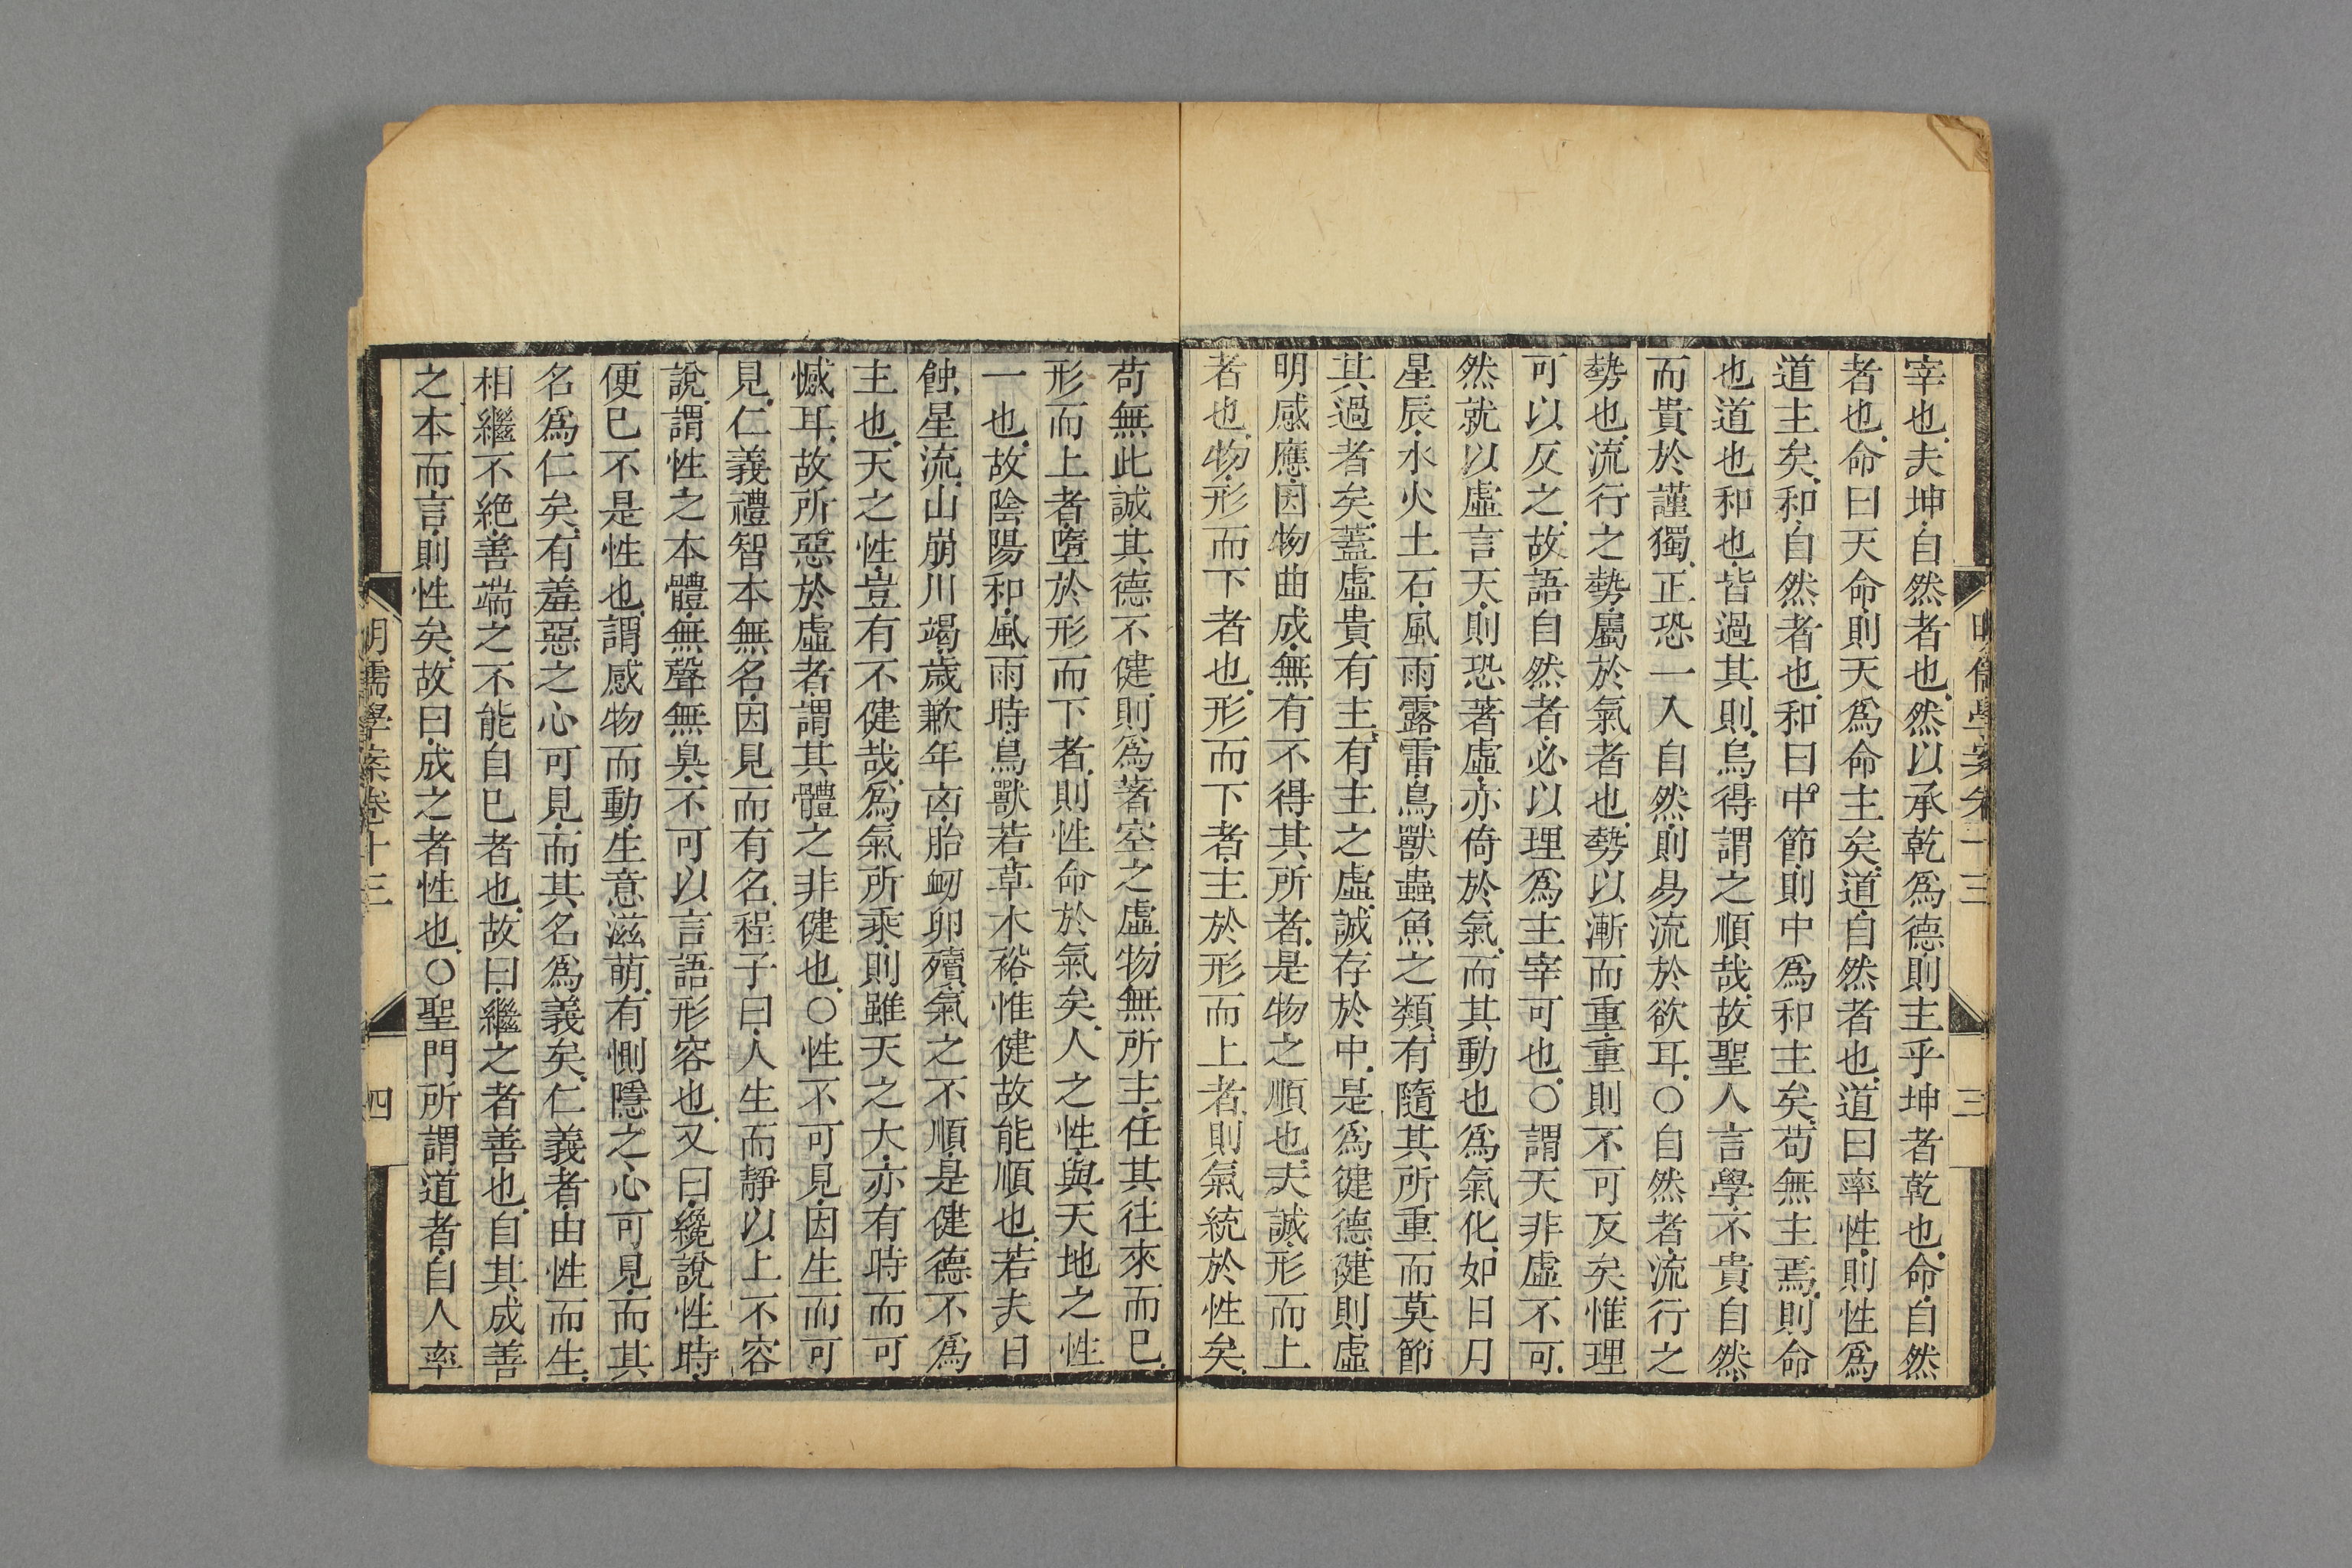 宰也夫坤自然者也然以承乾爲德則主乎坤者乾也命自然
者也命曰天命則天爲命主矣道自然者也道曰率性則性爲
道主矣和自然者也和曰中節則中爲和主矣苟無主焉則命
也道也和也皆過其則烏得謂之順哉故聖人言學不貴自然
而貴於謹獨正恐一入自然則易流於欲耳○自然者流行之
勢也流行之勢屬於氣者也勢以漸而重重則不可反矣惟理
可以反之故語自然者必以理爲主宰可也○謂天非虛不可
然就以虛言天則恐著虛亦倚於氣而其動也爲氣化如日月
星辰水火土石風雨露雷鳥獸蟲魚之類有隨其所重而莫節
其過者矣蓋虛貴有主有主之虛誠存於中是爲健德健則虛
明感應因物曲成無有不得其所者是物之順也夫誠形而上
者也物形而下者也形而下者主於形而上者則氣統於性矣
苟無此誠其德不健則爲著空之虛物無所主任其往來而已
形而上者墮於形而下者則性命於氣矣人之性與天地之性
一也故陰陽和風雨時鳥獸若草木裕惟健故能順也若夫日
蝕星流山崩川竭歲歉年凶胎卵殰氣之不順是健德不爲
主也天之性豈有不健哉爲氣所乘則雖天之大亦有時而可
憾耳故所惡於虛者謂其體之非健也○性不可見因生而可
見仁義禮智本無名因見而有名程子曰人生而靜以上不容
說謂性之本體無聲無臭不可以言語形容也又曰纔說性時
便已不是性也謂感物而動生意滋萌有惻隱之心可見而其
名爲仁矣有羞惡之心可見而其名爲義矣仁義者由性而生
相繼不絶善端之不能自已者也故曰繼之者善也自其成善
之本而言則性矣故曰成之者性也○聖門所謂道者自人率
明儒學案卷十三
四
三